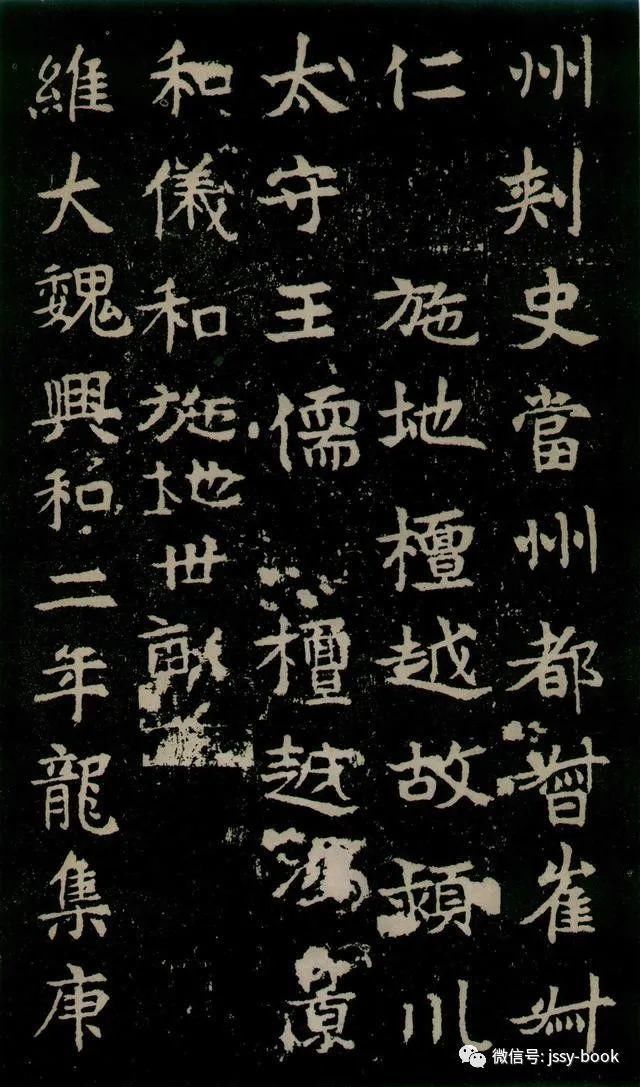 州刾史當州都督崔叔
仁 施地檀越故頴川
太守王儒 檀越原
和儀和施地卅畝
維大魏興和二年龍集庚
微信号: jssy-book